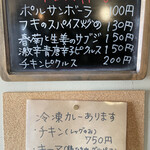 ポルサンボーラ 100円
フキのスパイス炒め 130円
春菊と生姜のサブジ 150円
激辛青唐辛子ピクルス 150円
チキンピクルス 200円
冷凍カレーあります
チキン(レッグのみ)
750円
キーマ